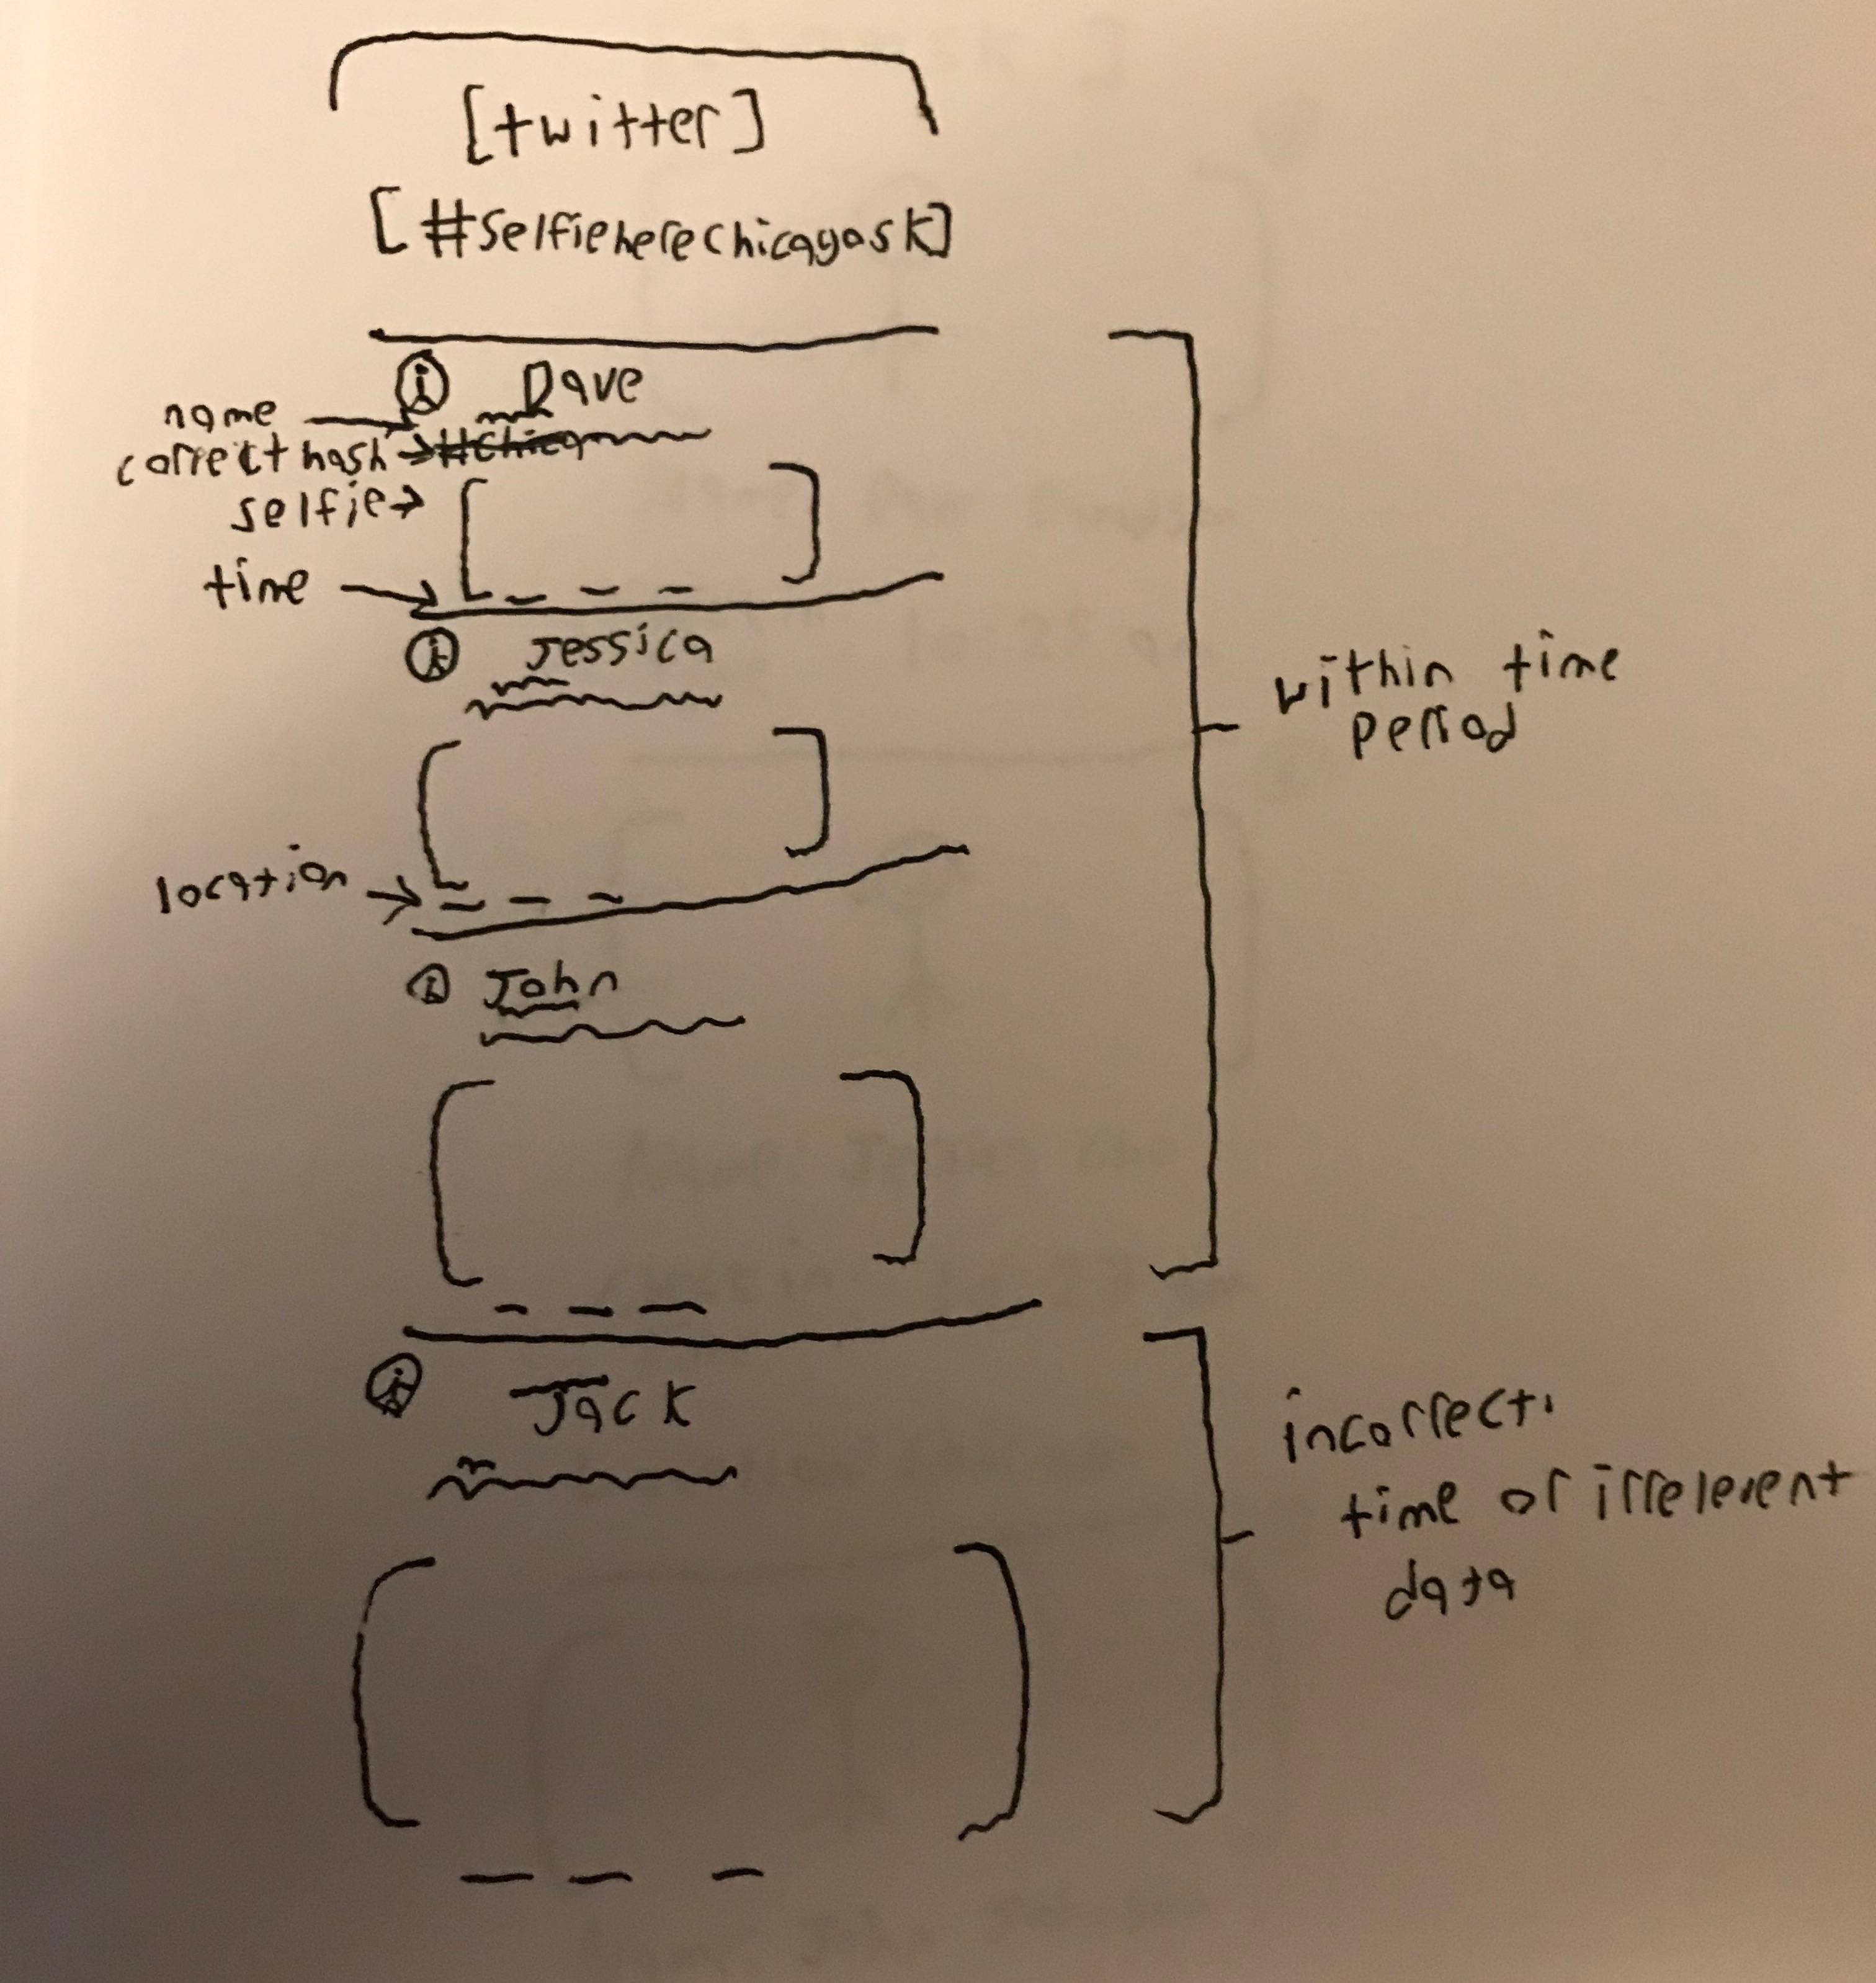 [twitter]
[#selfieherechicagosk]
Dave
name
correct hash
selfie
time
Jessica
within time
period
location
John
Jack
incorrect
time or irrelevent
data